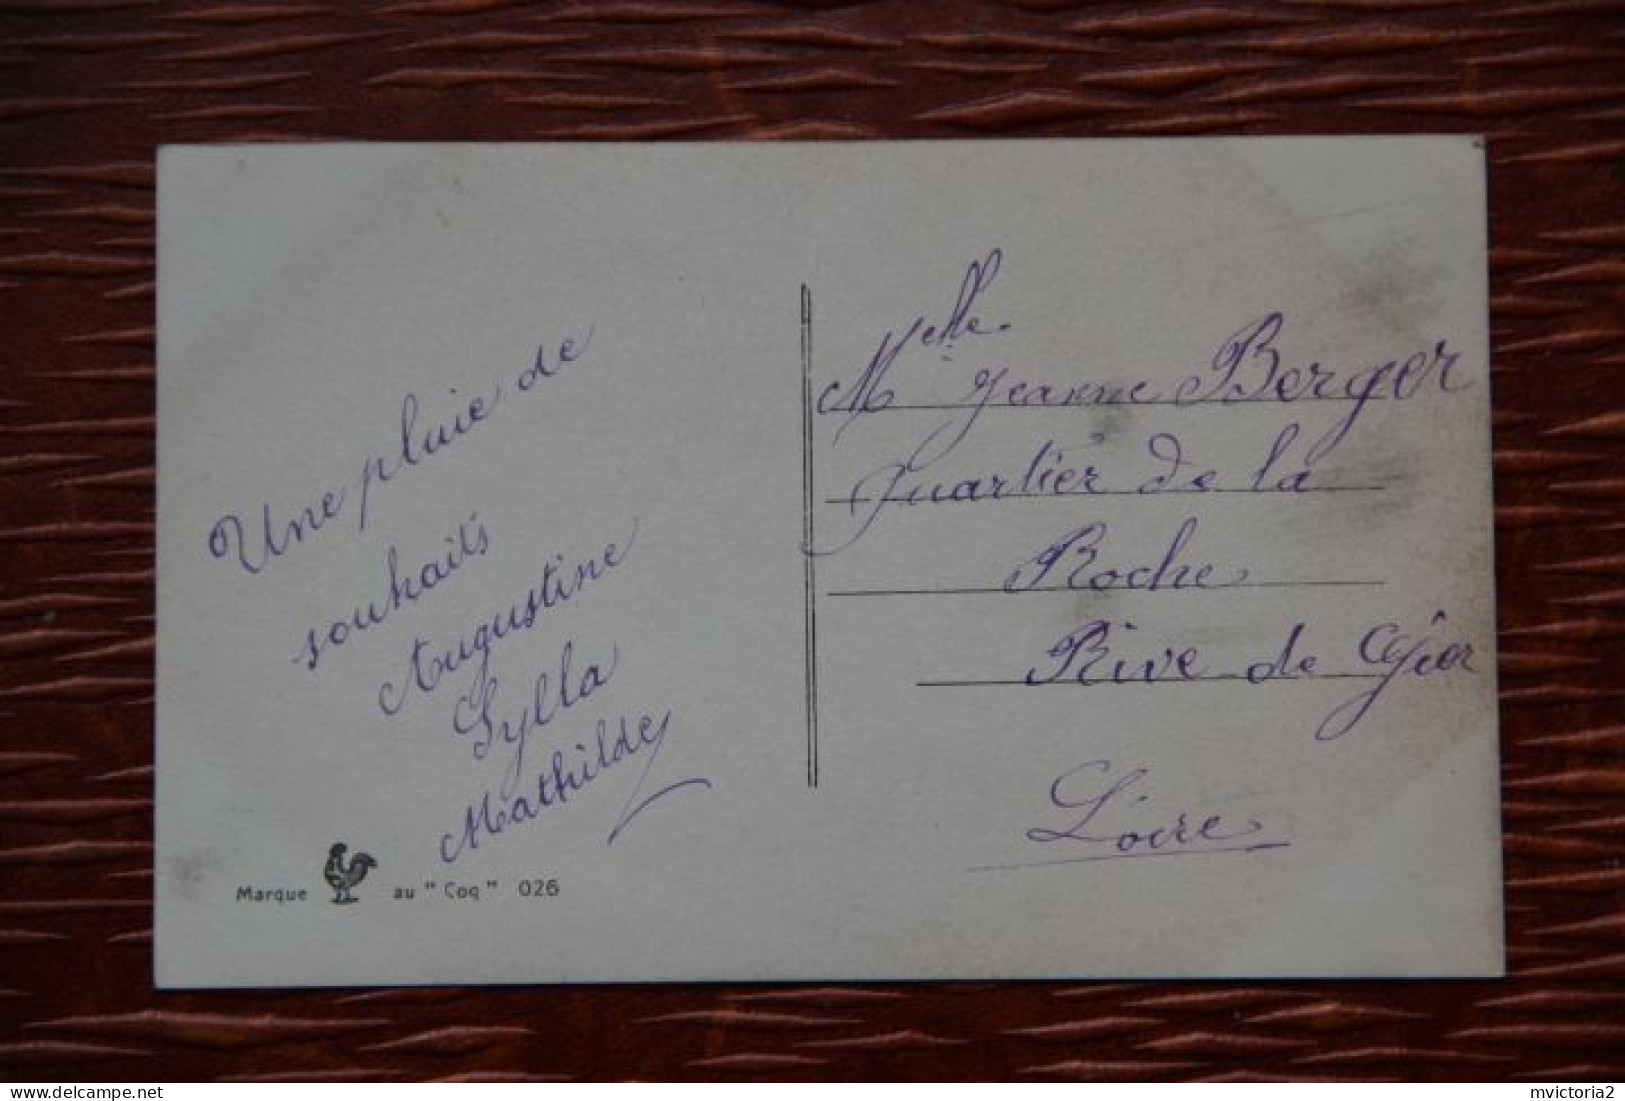 Une pluie de
souhaits
Augustine
Sylla
Mathilde
Marque au "Coq" 026
Melle Jeanne Berger
Quartier de la
Roche
Rive de Gier
Loire
mvictoria2